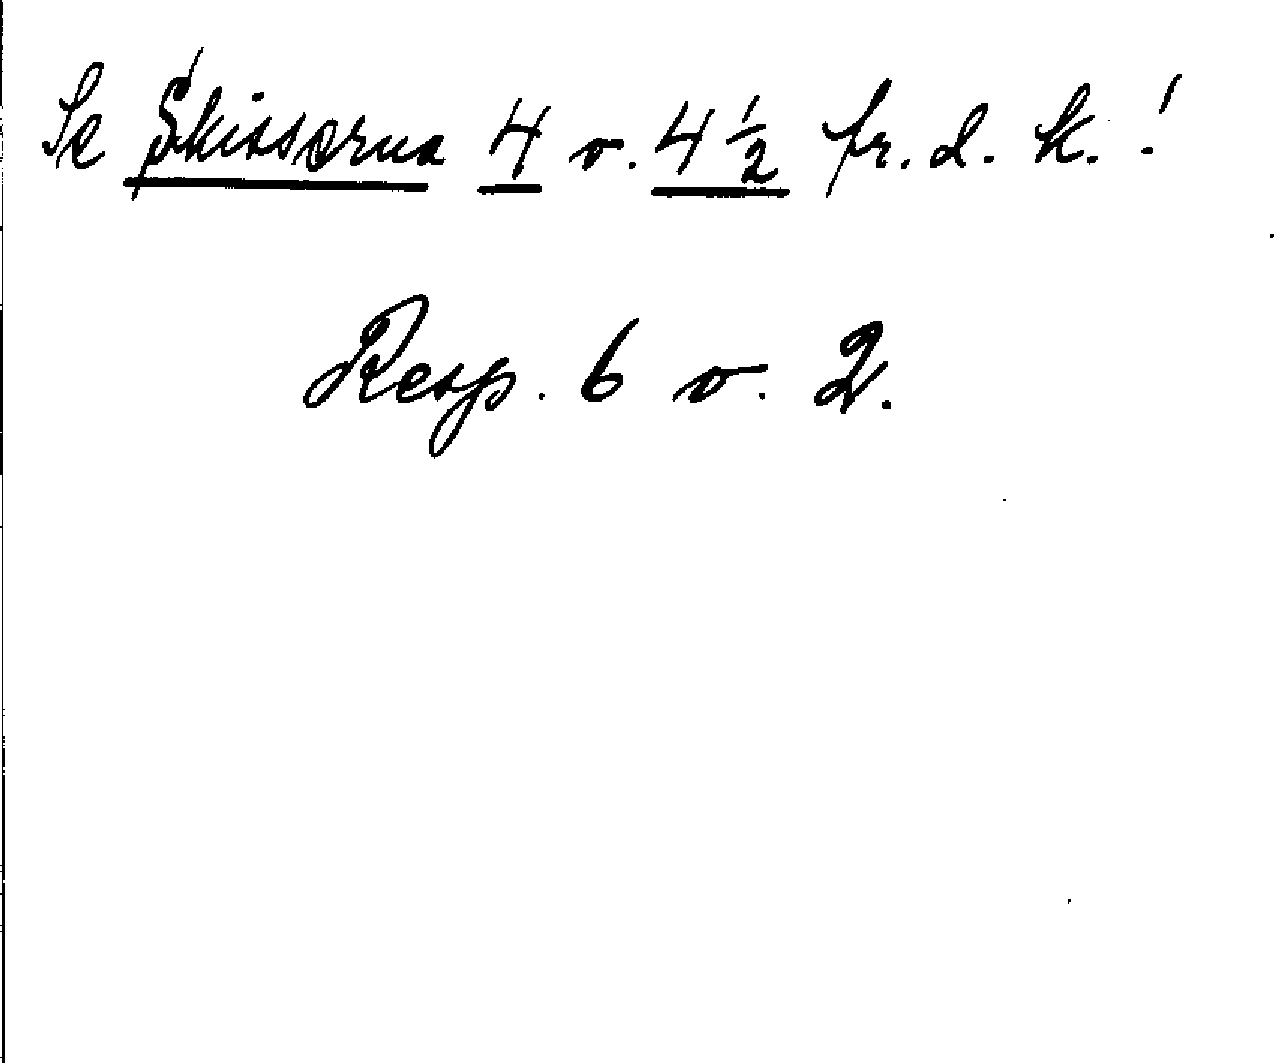 Se Skisserna 4 o. 4 1/2 fr. d. k.!
Resp. 6 o. 2.